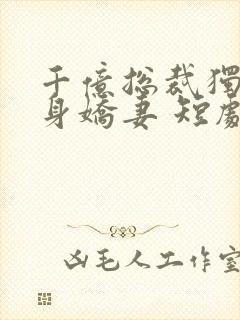 千億總裁獨
身嬌妻 短劇
凶毛人工作室